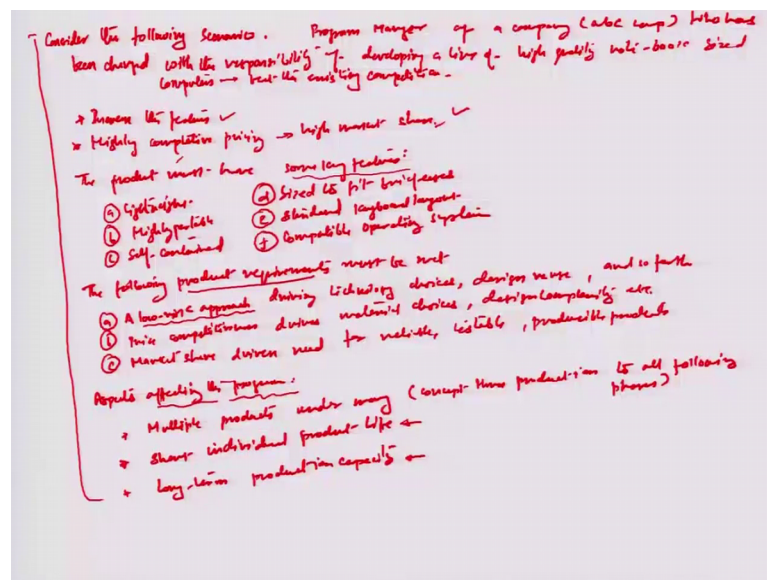 Consider the following Scenario. Program Manager of a company (abc comp) who has
been charged with the responsibility of developing a line of high quality note-book sized
computers → beat the existing competition.
* Increase the features ✓
* Highly competitive pricing → high market share ✓
The product must have some key features:
(a) Lightweight (d) Sized to fit briefcases
(b) Highly portable (e) Standard keyboard layout
(c) Self-contained (f) Compatible operating system
The following product requirements must be met
(a) A low-risk approach driving technology choices, design reuse, and so forth
(b) Price competitiveness drives material choices, design complexity etc.
(c) Market share driven need for reliable, testable, producible products
Aspects affecting the program:
* Multiple products under way (concept thru production to all following
phases)
* Short individual product life ←
* Long-term production capacity ←